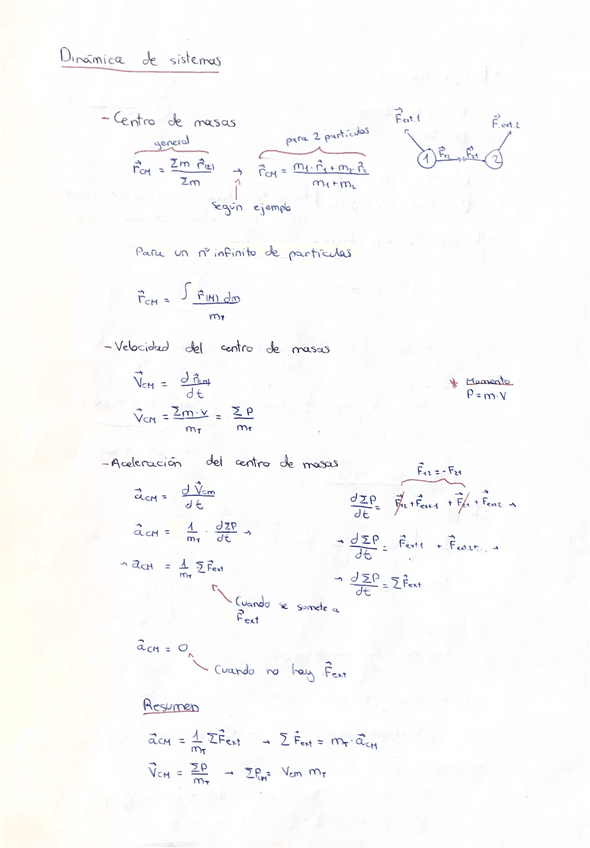 Dinámica de sistemas
- Centro de masas
general
para 2 partículas
r⃗CM = Σm r⃗(t) / Σm → r⃗CM = m1·r⃗1 + m2·r⃗2 / m1+m2
según ejemplo
F⃗ext1 F⃗ext2
1 F⃗12 F⃗21 2
Para un nº infinito de partículas
r⃗CM = ∫ r⃗(M) dm / mT
- Velocidad del centro de masas
V⃗CM = d r⃗CM / dt
V⃗CM = Σm·v / mT = ΣP / mT
* Momento
P = m·V
- Aceleración del centro de masas
a⃗CM = d V⃗cm / dt
a⃗CM = 1/mT · dΣP/dt →
→ a⃗CM = 1/mT ΣF⃗ext
Cuando se somete a
F⃗ext
F⃗12 = -F⃗21
dΣP/dt = F⃗12 + F⃗ext1 + F⃗21 + F⃗ext2 →
→ dΣP/dt = F⃗ext1 + F⃗ext2+... →
→ dΣP/dt = ΣF⃗ext
a⃗CM = 0
Cuando no hay F⃗ext
Resumen
a⃗CM = 1/mT ΣF⃗ext → ΣF⃗ext = mT·a⃗CM
V⃗CM = ΣP/mT → ΣPCM = Vcm mT